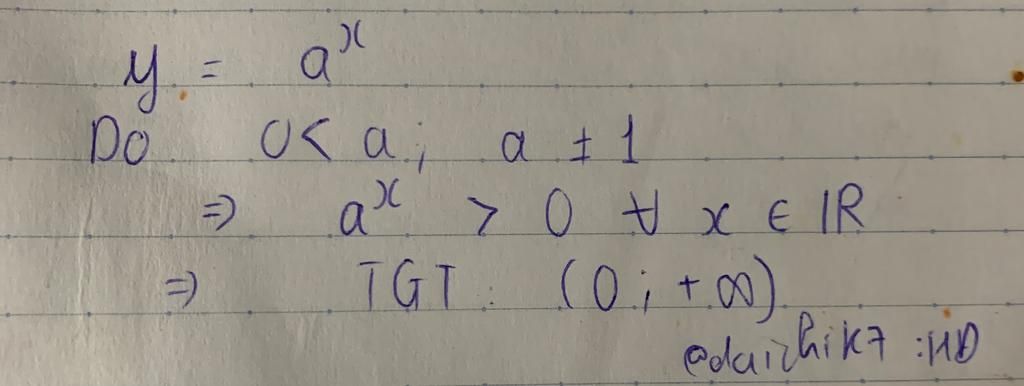 y = aˣ
Do 0 < a ; a ≠ 1
⇒ aˣ > 0 ∀ x ∈ ℝ
⇒ TGT : (0 ; + ∞)
@daichik7 :HD